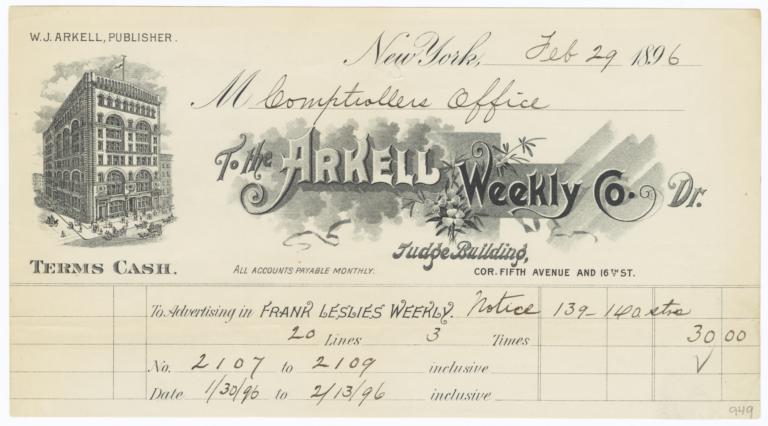 W.J. ARKELL, PUBLISHER.
New York, Feb 29 1896
M Comptrollers Office
To the ARKELL Weekly Co. Dr.
Judge Building,
TERMS CASH.
ALL ACCOUNTS PAYABLE MONTHLY.
COR. FIFTH AVENUE AND 16TH ST.
To Advertising in FRANK LESLIE'S WEEKLY. Notice 139-140
20 Lines 3 Times 30 00
No. 2107 to 2109 inclusive
Date 1/30/96 to 2/13/96 inclusive
949